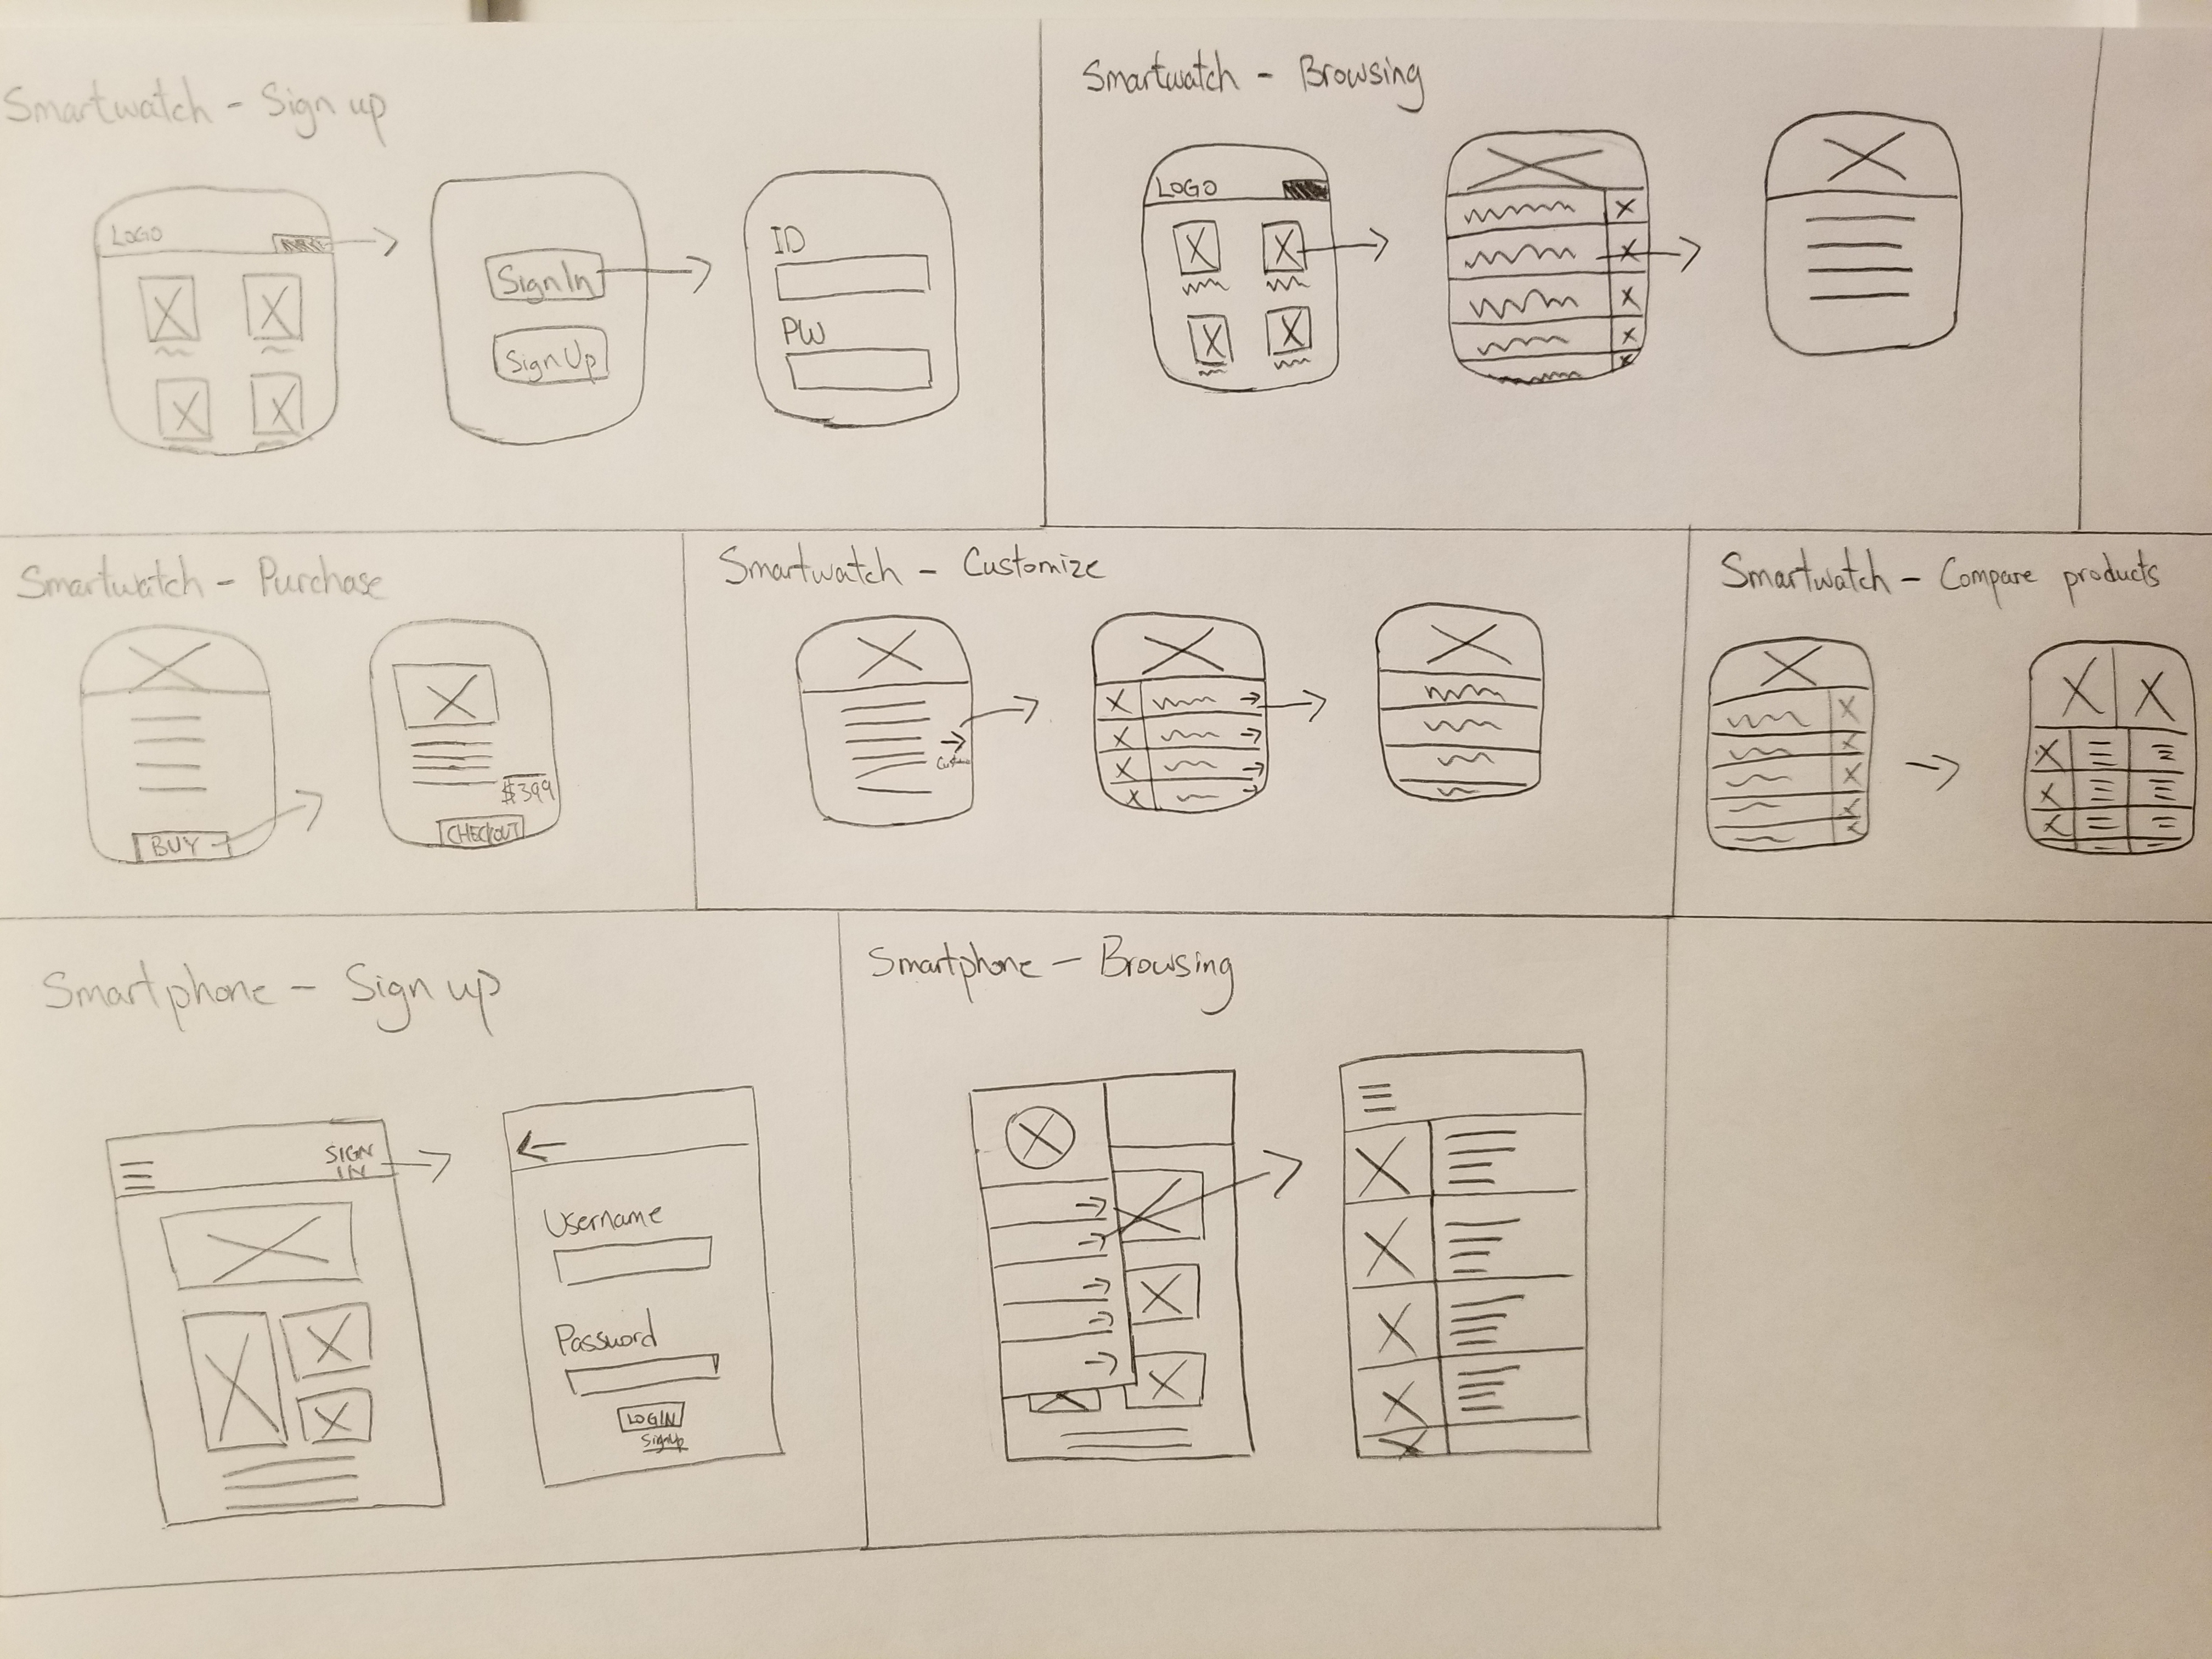 Smartwatch - Sign up
LOGO
Sign In
Sign Up
ID
PW
Smartwatch - Browsing
LOGO
Smartwatch - Purchase
BUY
$399
CHECKOUT
Smartwatch - Customize
Smartwatch - Compare products
Smartphone - Sign up
SIGN
IN
Username
Password
LOGIN
SignUp
Smartphone - Browsing